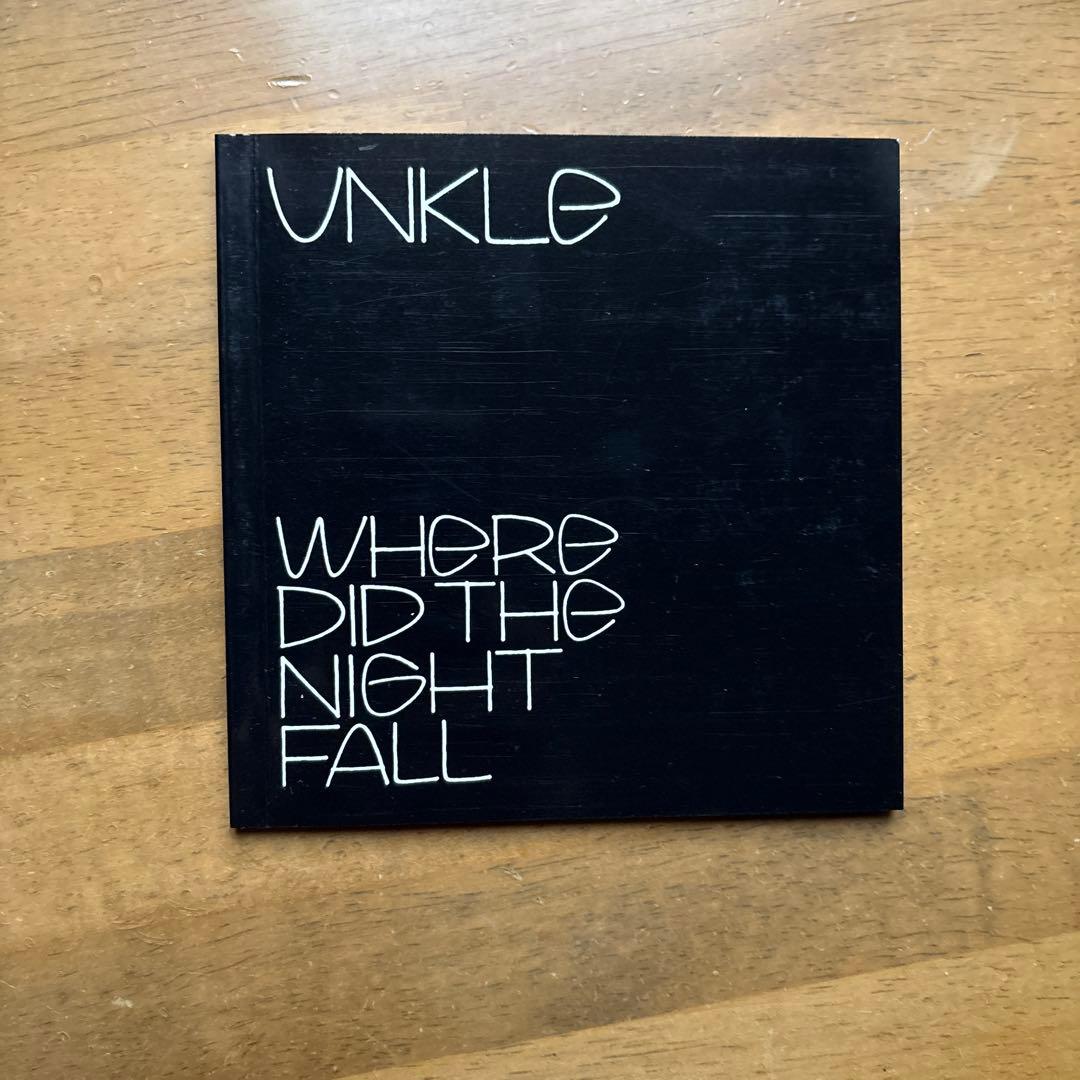 UNKLe
WHeRe
DID THe
NIGHT
FALL